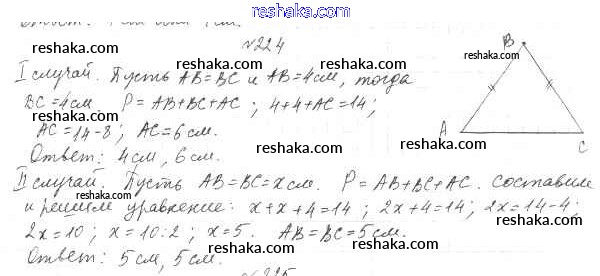 reshaka.com
№224
reshaka.com reshaka.com reshaka.com
I случай. Пусть AB=BC и AB=4см, тогда
BC=4см. P=AB+BC+AC; 4+4+AC=14;
reshaka.com reshaka.com
AC=14-8; AC=6см.
Ответ: 4см, 6см.
reshaka.com reshaka.com
B
A
C
reshaka.com
II случай. Пусть AB=BC=x см. P=AB+BC+AC. Составим
reshaka.com reshaka.com reshaka.com
и решим уравнение: x+x+4=14; 2x+4=14; 2x=14-4;
2x=10; x=10:2; x=5. AB=BC=5см.
reshaka.com reshaka.com
Ответ: 5см, 5см.
reshaka.com
№225
reshaka.com